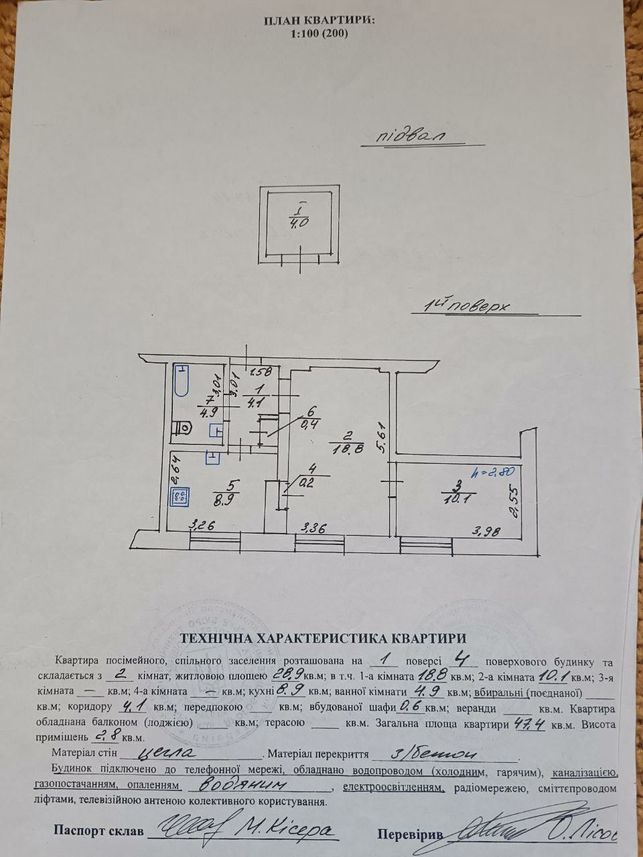 ПЛАН КВАРТИРИ:
1:100 (200)
підвал
I
4.0
1й поверх
1.58
3,01
3,01
1
4.1
7
4.9
6
0,4
2
18.8
5.61
h=2,80
2,64
4
0.2
3
10.1
2,55
5
8.9
3,26
3,36
3,98
ТЕХНІЧНА ХАРАКТЕРИСТИКА КВАРТИРИ
Квартира посімейного, спільного заселення розташована на 1 поверсі 4 поверхового будинку та
складається з 2 кімнат, житловою площею 28,9 кв.м; в т.ч. 1-а кімната 18.8 кв.м; 2-а кімната 10.1 кв.м; 3-я
кімната — кв.м; 4-а кімната — кв.м; кухні 8.9 кв.м, ванної кімнати 4.9 кв.м; вбиральні (поєднаної)
кв.м; коридору 4.1 кв.м; передпокою кв.м; вбудованої шафи 0.6 кв.м; веранди кв.м. Квартира
обладнана балконом (лоджією) кв.м; терасою кв.м. Загальна площа квартири 47,4 кв.м. Висота
приміщень 2,8 кв.м.
Матеріал стін цегла. Матеріал перекриття з/бетон.
Будинок підключено до телефонної мережі, обладнано водопроводом (холодним, гарячим), каналізацією,
газопостачанням, опаленням водяним, електроосвітленням, радіомережею, сміттєпроводом
ліфтами, телевізійною антеною колективного користування.
Паспорт склав М.Кісера Перевірив О.Лісо